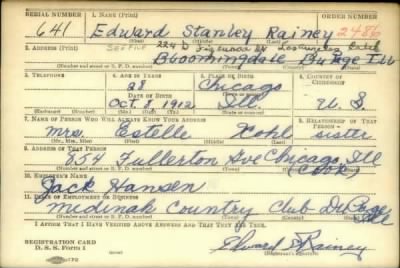 SERIAL NUMBER 1. NAME (Print) ORDER NUMBER
641 Edward Stanley Rainey 2486
(First) (Middle) (Last)
2. ADDRESS (Print)
Bloomingdale Du Page Ill
(Number and street or R. F. D. number) (Town) (County) (State)
3. TELEPHONE 4. AGE IN YEARS 5. PLACE OF BIRTH 6. COUNTRY OF CITIZENSHIP
28 Chicago
DATE OF BIRTH
Oct. 8, 1912 Ill. U. S.
(Exchange) (No.) (Mo.) (Day) (Yr.) (State or country)
7. NAME OF PERSON WHO WILL ALWAYS KNOW YOUR ADDRESS 8. RELATIONSHIP OF THAT PERSON
Mrs. Estelle Kohl sister
(Mr., Mrs., Miss) (First) (Middle) (Last)
9. ADDRESS OF THAT PERSON
854 Fullerton Ave Chicago, Ill
Cook
(Number and street or R. F. D. number) (Town) (County) (State)
10. EMPLOYER'S NAME
Jack Hansen
11. PLACE OF EMPLOYMENT OR BUSINESS
Medinah Country Club Du Page Ill
(Number and street or R. F. D. number) (Town) (County) (State)
I AFFIRM THAT I HAVE VERIFIED ABOVE ANSWERS AND THAT THEY ARE TRUE.
REGISTRATION CARD
D. S. S. Form 1 Edward S Rainey